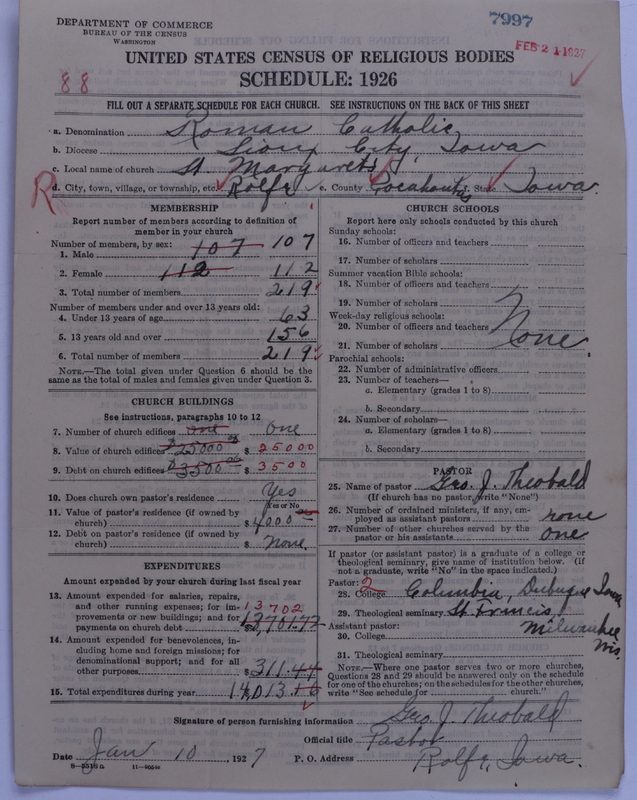 7997
FEB 21 1927
DEPARTMENT OF COMMERCE
BUREAU OF THE CENSUS
WASHINGTON
UNITED STATES CENSUS OF RELIGIOUS BODIES
SCHEDULE: 1926
88
FILL OUT A SEPARATE SCHEDULE FOR EACH CHURCH. SEE INSTRUCTIONS ON THE BACK OF THIS SHEET
a. Denomination Roman Catholic
b. Diocese Sioux City, Iowa
c. Local name of church St. Margarets
R d. City, town, village, or township, etc. Rolfe e. County Pocahontas f. State Iowa.
MEMBERSHIP
Report number of members according to definition of
member in your church
Number of members, by sex:
1. Male 107 107
2. Female 112 112
3. Total number of members 219
Number of members under and over 13 years old:
4. Under 13 years of age 63
5. 13 years old and over 156
6. Total number of members 219
NOTE.—The total given under Question 6 should be the
same as the total of males and females given under Question 3.
CHURCH BUILDINGS
See instructions, paragraphs 10 to 12
7. Number of church edifices one one
8. Value of church edifices $25000 $ 25000
9. Debt on church edifices $3500 $ 3500
10. Does church own pastor's residence Yes
Yes or No
11. Value of pastor's residence (if owned by
church) $ 4000
12. Debt on pastor's residence (if owned by
church) $ None.
EXPENDITURES
Amount expended by your church during last fiscal year
13. Amount expended for salaries, repairs,
and other running expenses; for im-
provements or new buildings; and for
payments on church debt 13702
14. Amount expended for benevolences, in-
cluding home and foreign missions; for
denominational support; and for all
other purposes $311.44
15. Total expenditures during year
CHURCH SCHOOLS
Report here only schools conducted by this church
Sunday schools:
16. Number of officers and teachers
17. Number of scholars
Summer vacation Bible schools:
18. Number of officers and teachers
19. Number of scholars
Week-day religious schools:
20. Number of officers and teachers
21. Number of scholars None
Parochial schools:
22. Number of administrative officers
23. Number of teachers—
a. Elementary (grades 1 to 8)
b. Secondary
24. Number of scholars—
a. Elementary (grades 1 to 8)
b. Secondary
PASTOR
25. Name of pastor Geo. J. Theobald
(If church has no pastor, write "None")
26. Number of ordained ministers, if any, em-
ployed as assistant pastors none
27. Number of other churches served by the
pastor or his assistants one
If pastor (or assistant pastor) is a graduate of a college or
theological seminary, give name of institution below. (If
not a graduate, write "No" in the space indicated.)
Pastor: 2
28. College Columbia, Dubuque Iowa
29. Theological seminary St Francis,
Assistant pastor: Milwaukee
30. College Wis.
31. Theological seminary
NOTE.—Where one pastor serves two or more churches,
Questions 28 and 29 should be answered only on the schedule
for one of the churches; on the schedules for the other churches,
write "See schedule for church."
Signature of person furnishing information Geo. J. Theobald
Official title Pastor
Date Jan 10, 1927 P. O. Address Rolfe, Iowa.